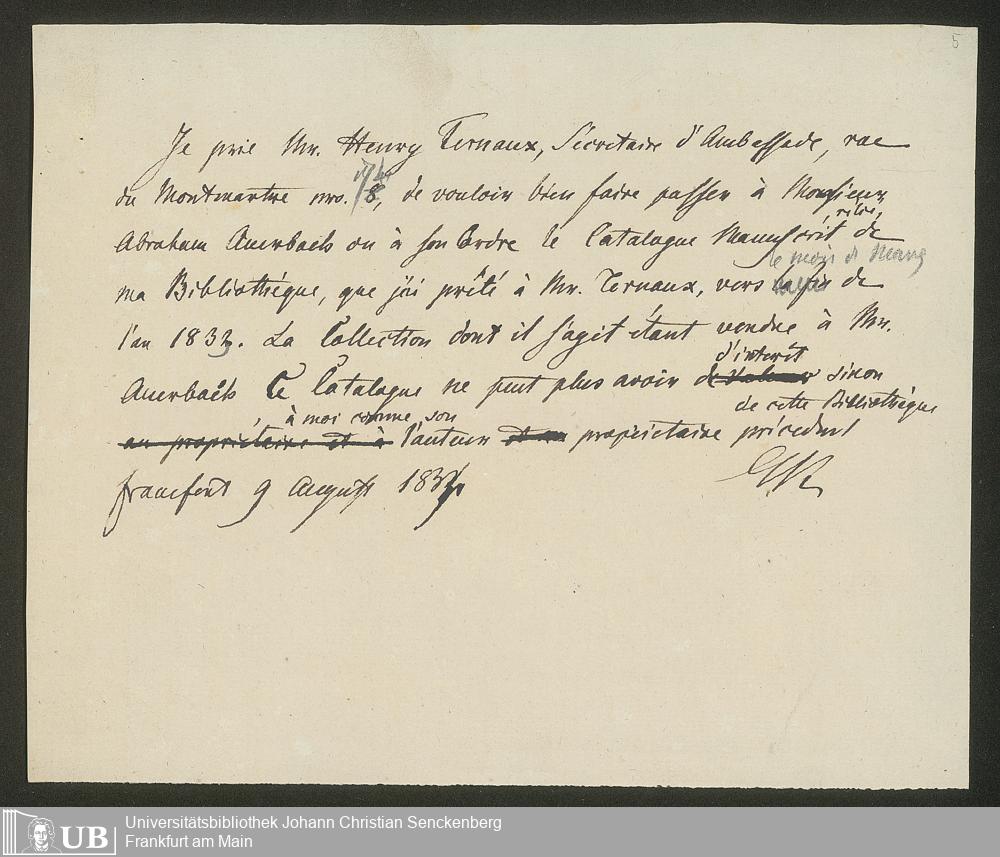 5
Je prie Mr. Henry Ternaux, Sécretaire d'Ambassade, rue
du Montmartre nro. 8, de vouloir bien faire passer à Monsieur
Abraham Auerbach ou à son Ordre le Catalogue Manuscrit de
ma Bibliothéque, que j'ai prêté à Mr. Ternaux, vers le mois de Mars de
l'an 1833. La Collection dont il s'agit étant vendue à Mr.
Auerbach Ce Catalogue ne peut plus avoir d'interêt sinon
au propriétaire et à à moi comme son l'auteur et propriétaire précedent de cette Bibliothéque
francfort 9 August 1834
UB Universitätsbibliothek Johann Christian Senckenberg
Frankfurt am Main